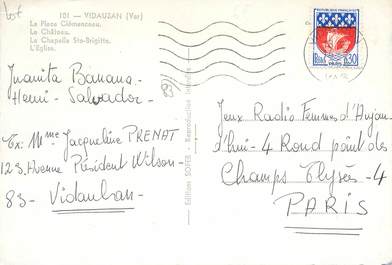 lost
101 — VIDAUBAN (Var)
La Place Clémenceau.
Le Château.
La Chapelle Ste-Brigitte.
L'Eglise.
Juanita Banana -
Henri - Salvador -
Ex: Mme Jacqueline PRENAT
123 Avenue Président Wilson -
83 - Vidauban -
(83)
Editions SOFER - Reproduction interdite
REPUBLIQUE FRANÇAISE
0,30
Jeux Radio Femmes d'Aujour
d'hui - 4 Rond point des
Champs Elysées - 4
PARIS